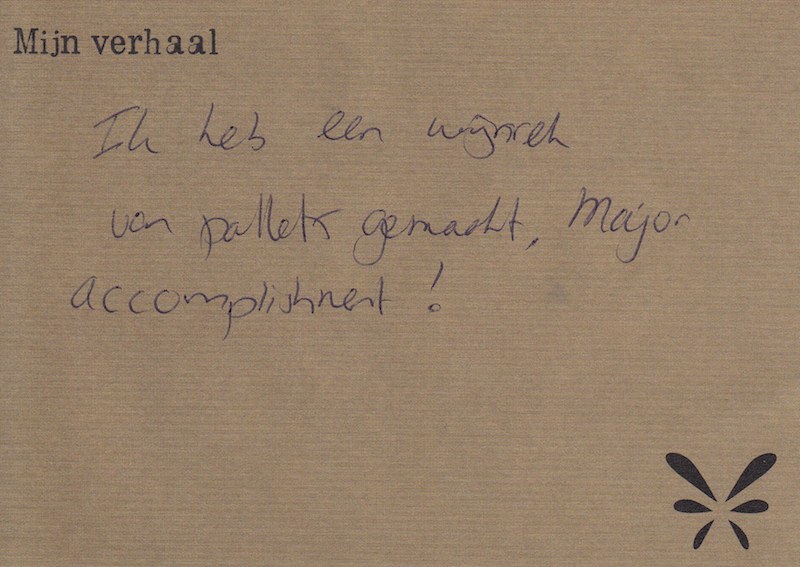 Mijn verhaal
Ik heb een wijnrek
van pallets gemacht, Major
accomplishment!